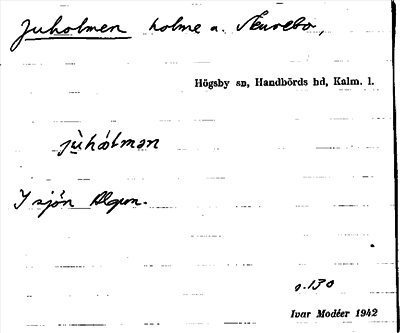 Juholmen holme a. Skurebo,
Högsby sn, Handbörds hd, Kalm. l.
jùhålmən
I sjön Algun.
s. 130
Ivar Modéer 1942